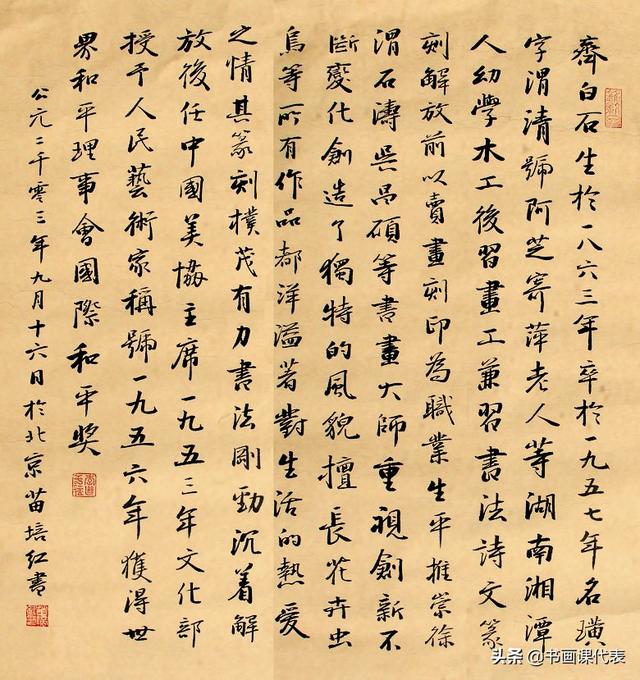 齊白石生於一八六三年卒於一九五七年名璜
字渭清號阿芝寄萍老人等湖南湘潭
人幼學木工後習畫工兼習書法詩文篆
刻解放前以賣畫刻印為職業生平推崇徐
渭石濤吳昌碩等書畫大師重視創新不
斷變化創造了獨特的風貌擅長花卉虫
鳥等所有作品都洋溢著對生活的熱愛
之情其篆刻樸茂有力書法剛勁沉着解
放後任中國美協主席一九五三年文化部
授予人民藝術家稱號一九五六年獲得世
界和平理事會國際和平獎
公元二千零三年九月十六日於北京苗培红書
头条 @书画课代表